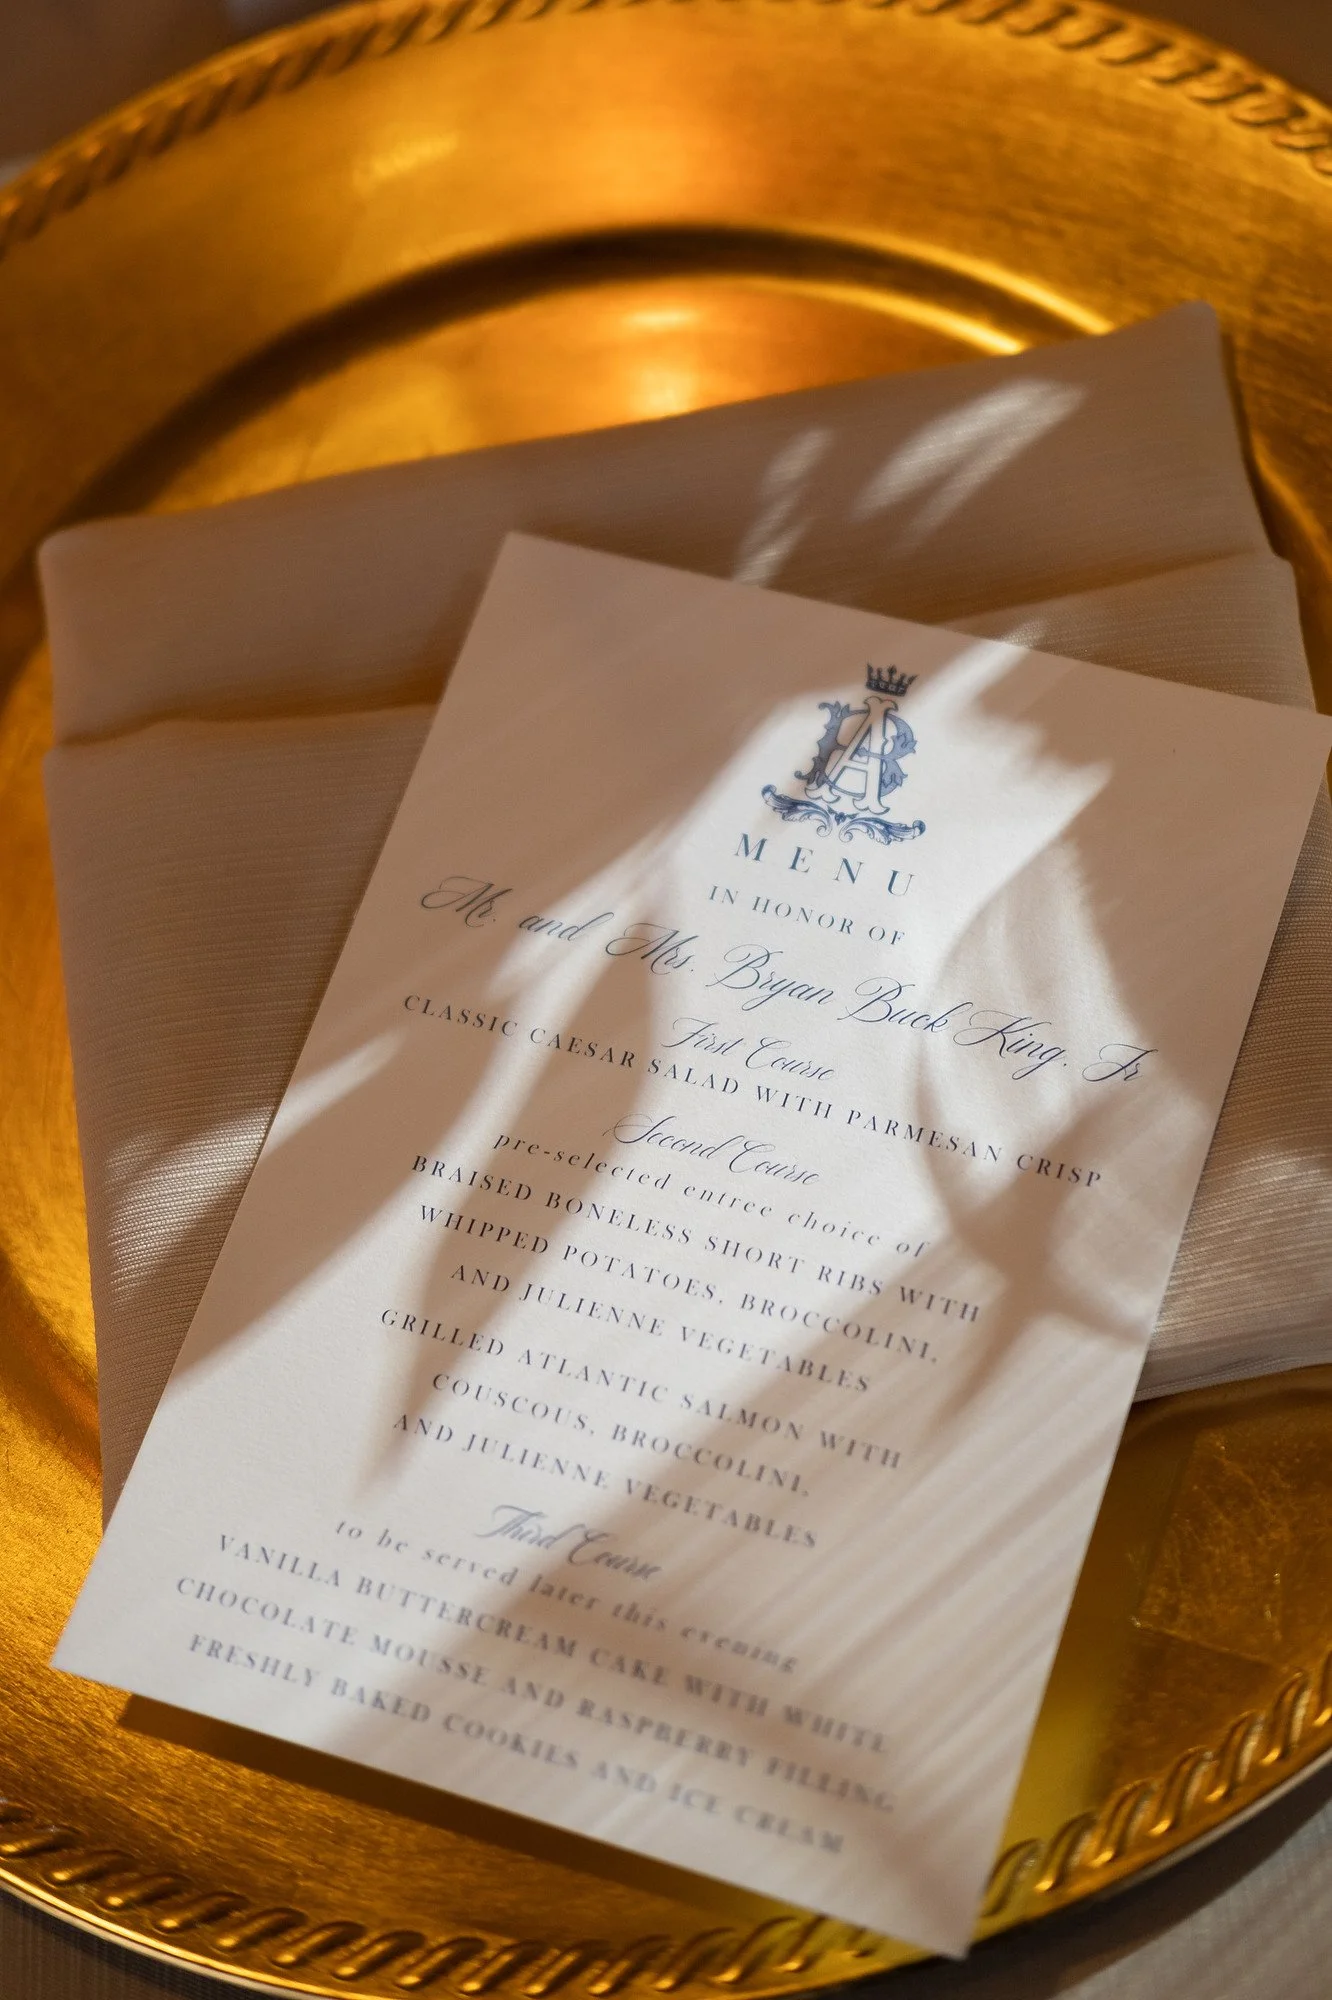 AB
MENU
IN HONOR OF
Mr. and Mrs. Bryan Buck King, Jr
First Course
CLASSIC CAESAR SALAD WITH PARMESAN CRISP
Second Course
pre-selected entree choice of
BRAISED BONELESS SHORT RIBS WITH
WHIPPED POTATOES, BROCCOLINI,
AND JULIENNE VEGETABLES
GRILLED ATLANTIC SALMON WITH
COUSCOUS, BROCCOLINI,
AND JULIENNE VEGETABLES
Third Course
to be served later this evening
VANILLA BUTTERCREAM CAKE WITH WHITE
CHOCOLATE MOUSSE AND RASPBERRY FILLING
FRESHLY BAKED COOKIES AND ICE CREAM